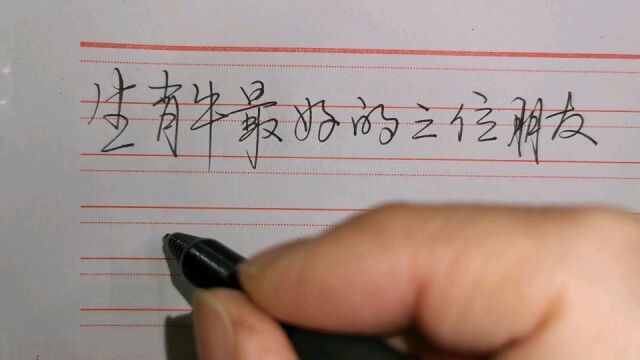 生肖牛最好的三位朋友